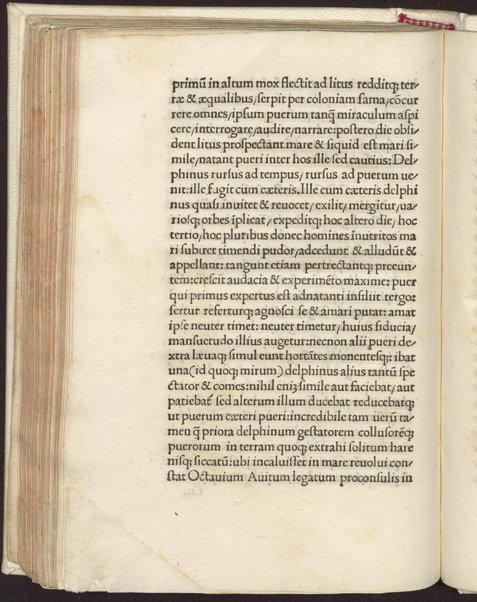 primū in altum mox flectit ad litus redditq; ter/
ræ & æqualibus/serpit per coloniam fama/cōcur
rere omnes/ipsum puerum tanq̄ miraculum aspi
cere/interrogare/audire/narrare:postero die obsi/
dent litus prospectant mare & siquid est mari si/
mile/natant pueri inter hos ille sed cautius: Del/
phinus rursus ad tempus/ rursus ad puerum ue/
nit:ille fugit cum cæteris.Ille cum cæteris delphi/
nus quasi inuitet & reuocet/exilit/mergitur/ua/
riosq; orbes īplicat/expeditq; hoc altero die/hoc
tertio/hoc pluribus donec homines īnutritos ma
ri subiret timendi pudor/adcedunt & alludūt &
appellant: tangunt etiam pertrectantq; preeun/
tem:crescit audacia & experimēto maxime: puer
qui primus expertus est adnatanti insiliit tergo:
fertur referturq; agnosci se & amari putat: amat
ipse neuter timet: neuter timetur/huius fiducia/
mansuetudo illius augetur:necnon alii pueri de/
xtra læuaq; simul eunt hortātes monentesq;: ibat
una(id quoq; mirum) delphinus alius tantū spe
ctator & comes:nihil eniʒ simile aut faciebat/aut
patiebat̄ sed alterum illum ducebat reducebatq;
ut puerum cæteri pueri:incredibile tam uerū ta/
men q̄ priora delphinum gestatorem collusorēq;
puerorum in terram quoq; extrahi solitum hare
nisq; siccatū:ubi incaluisset in mare reuolui con/
stat Octauium Auitum legatum proconsulis in